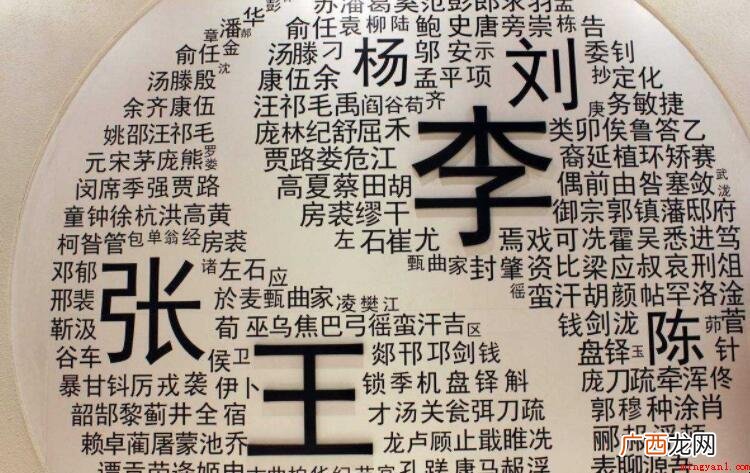 苏潘葛奚范彭郎
华
潘郝
章金
俞任
沈
汤滕殷
余齐康伍
姚邵汪祁毛
元宋茅庞熊罗娄
闵席季强贾路
童钟徐杭洪高黄
柯昝管包单翁经房裘
邓郁
邢裴
靳汲
谷车
诸左石应
於麦甄曲家凌樊江
荀巫乌焦巴弓
侯卫
暴甘钭厉戎袭伊卜
韶郜黎蓟井全宿
赖卓蔺屠蒙池乔
俞任袁柳陆鲍史唐
汤滕刁
康伍余
杨
邬安示
孟平项
汪祁毛禹阎谷苟齐
庞林纪舒屈禾
贾路娄危江
高夏蔡田胡
房裘缪干
左石崔尤
甄曲家封
刘
李
张
王
陈
委钊
抄定化
庚务敏捷
类卯俟鲁答乙
裔延植环矫赛
偶前由昝塞敛武泷
御宗郭镇藩邸府
焉戏可冼霍吴悉进笃
肇资比梁应叔哀刑俎
徭蛮汗胡颜帖罗洛淦
徭蛮汗吉区
钱剑泷
茆菅
盘铎玉
针
郯邗邛剑钱
锁季机盘铎斛
才汤关瓮弭刀疏
龙卢顾止戢睢冼
庞刀疏牵浑佟
郭穆种涂肖
广西龙网
www.mingyan1.com